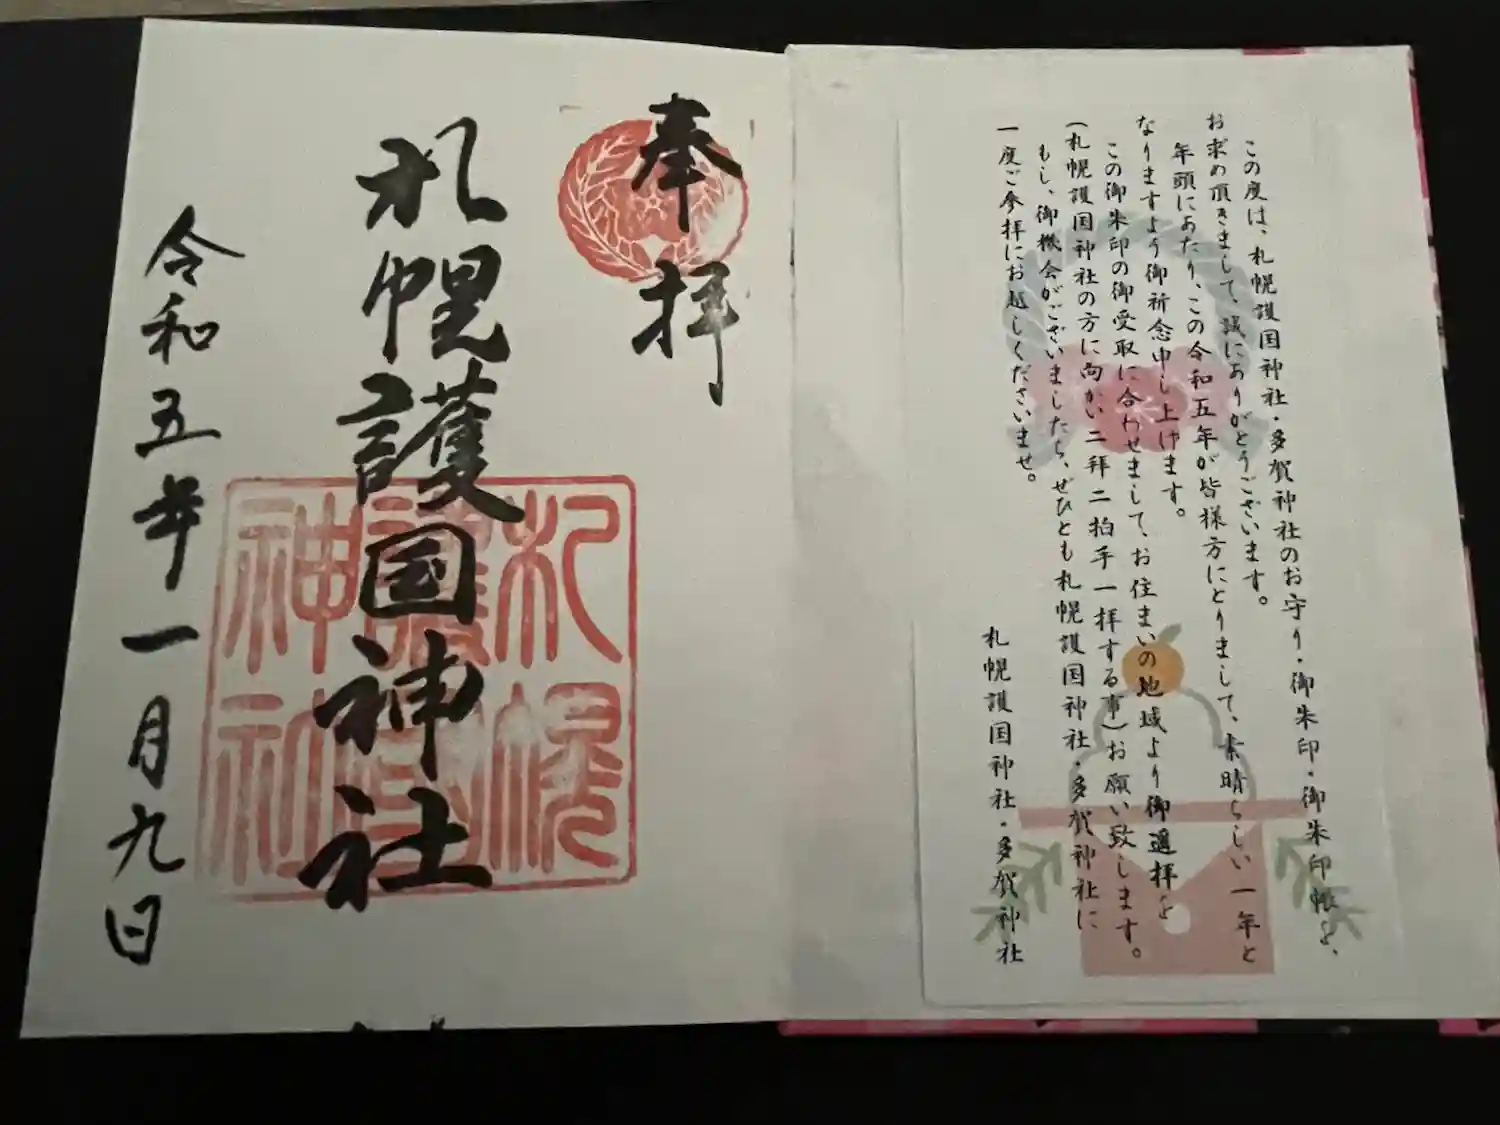 この度は、札幌護国神社・多賀神社のお守り・御朱印・御朱印帳を、
お求め頂きまして、誠にありがとうございます。
年頭にあたり、この令和五年が皆様方にとりまして、素晴らしい一年と
なりますよう御祈念申し上げます。
この御朱印の御受取に合わせまして、お住まいの地域より御遥拝を
(札幌護国神社の方に向かい二拝二拍手一拝する事)お願い致します。
もし、御機会がございましたら、ぜひとも札幌護国神社・多賀神社に
一度ご参拝にお越しくださいませ。
札幌護国神社・多賀神社
奉拝
札幌護国神社
札幌
護國
神社
令和五年一月九日